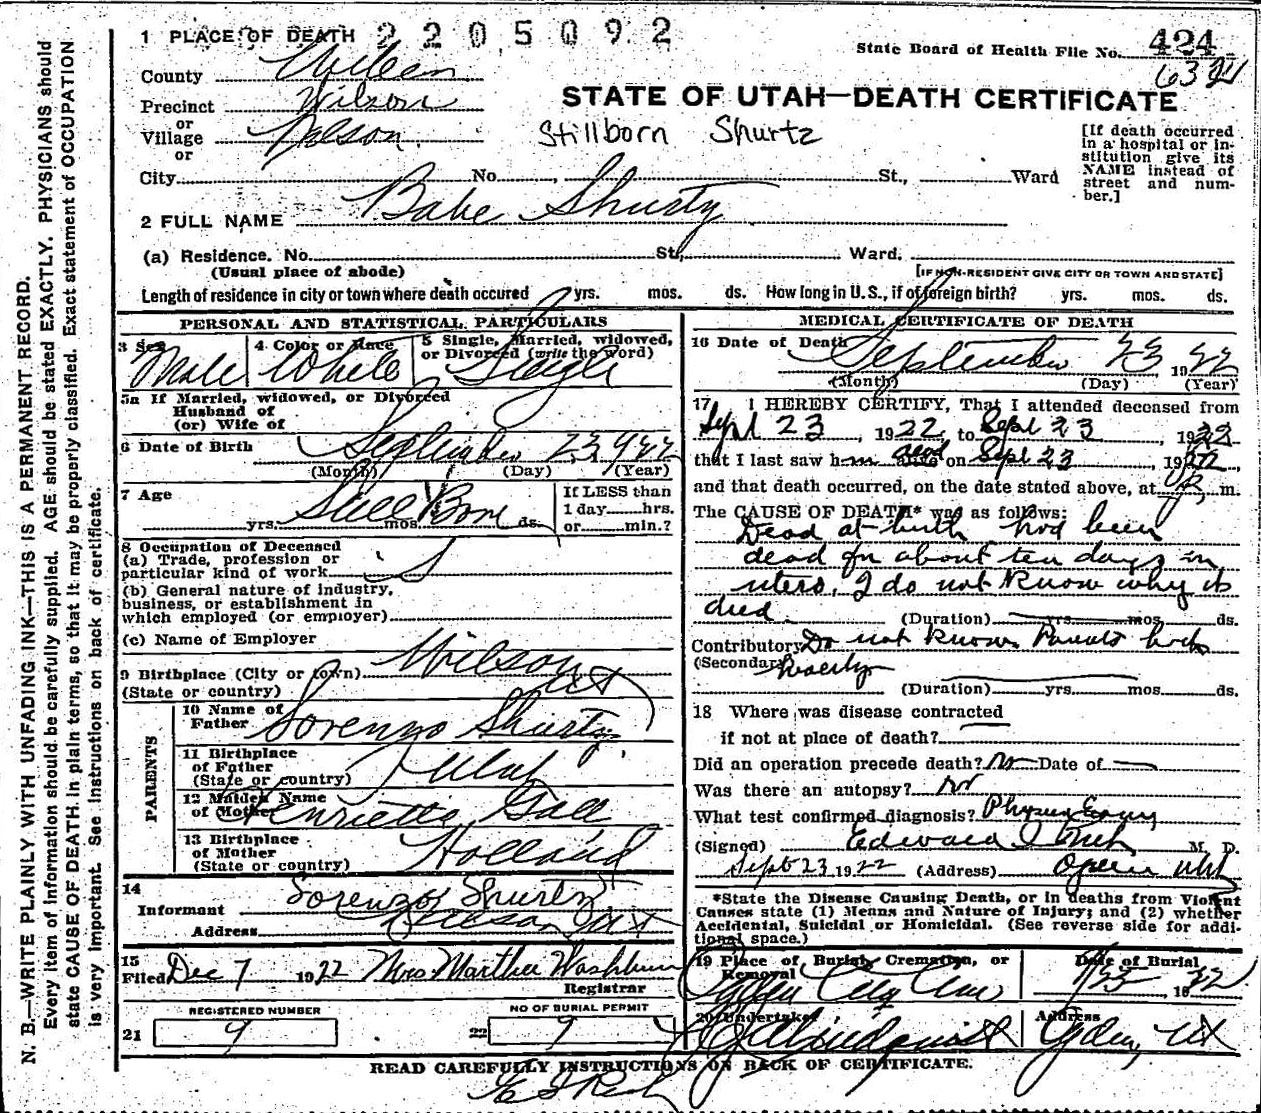 1 PLACE OF DEATH 2205092
State Board of Health File No. 424
6394
County Weber
Precinct Wilson
or
Village Wilson
or
STATE OF UTAH—DEATH CERTIFICATE
Stillborn Shurtz
[If death occurred in a hospital or institution give its NAME instead of street and number.]
City No. St., Ward
2 FULL NAME Babe Shurtz
(a) Residence. No. St., Ward.
(Usual place of abode) [IF NON-RESIDENT GIVE CITY OR TOWN AND STATE]
Length of residence in city or town where death occured yrs. mos. ds. How long in U. S., if of foreign birth? yrs. mos. ds.
PERSONAL AND STATISTICAL PARTICULARS
3 Sex Male
4 Color or Race White
5 Single, Married, widowed, or Divorced (write the word) Single
5a If Married, widowed, or Divorced
Husband of
(or) Wife of
6 Date of Birth September 23 1922
(Month) (Day) (Year)
7 Age Still Born
yrs. mos. ds.
If LESS than
1 day hrs.
or min.?
8 Occupation of Deceased
(a) Trade, profession or
particular kind of work
(b) General nature of industry,
business, or establishment in
which employed (or employer)
(c) Name of Employer
9 Birthplace (City or town) Wilson
(State or country) Ut
PARENTS
10 Name of Father Lorenzo Shurtz
11 Birthplace of Father (State or country) Utah
12 Maiden Name of Mother Henrietta Gall
13 Birthplace of Mother (State or country) Holland
14
Informant Lorenzo Shurtz
Address Wilson Ut
15
Filed Dec 7 1922 Mrs. Marther Washburn
Registrar
REGISTERED NUMBER
21 9
NO OF BURIAL PERMIT
22 9
MEDICAL CERTIFICATE OF DEATH
16 Date of Death September 23 1922
(Month) (Day) (Year)
17 I HEREBY CERTIFY, That I attended deceased from
Sept 23, 1922, to Sept 23, 1922
that I last saw him alive dead on Sept 23, 1922
and that death occurred, on the date stated above, at m.
The CAUSE OF DEATH* was as follows:
Dead at birth had been
dead for about ten days in
utero, I do not know why it
died
(Duration) yrs. mos. ds.
Contributory Do not know. Parents both
(Secondary) healthy
(Duration) yrs. mos. ds.
18 Where was disease contracted
if not at place of death?
Did an operation precede death? no Date of
Was there an autopsy? no
What test confirmed diagnosis? Physical Exam
(Signed) Edward I M. D.
Sept 23 1922 (Address) Ogden Utah
*State the Disease Causing Death, or in deaths from Violent
Causes state (1) Means and Nature of Injury; and (2) whether
Accidental, Suicidal or Homicidal. (See reverse side for addi-
tional space.)
19 Place of Burial, Cremation, or Removal Ogden City Cem
Date of Burial 9/25, 1922
20 Undertaker Lindquist
Address Ogden, Ut
READ CAREFULLY INSTRUCTIONS ON BACK OF CERTIFICATE.
N. B.—WRITE PLAINLY WITH UNFADING INK—THIS IS A PERMANENT RECORD.
Every item of information should be carefully supplied. AGE should be stated EXACTLY. PHYSICIANS should
state CAUSE OF DEATH in plain terms, so that it may be properly classified. Exact statement of OCCUPATION
is very important. See instructions on back of certificate.